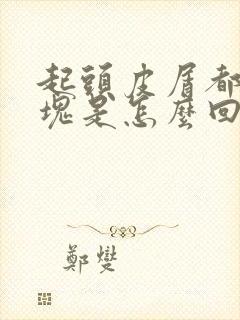 起頭皮屑都
塊是怎麼回
鄭燮